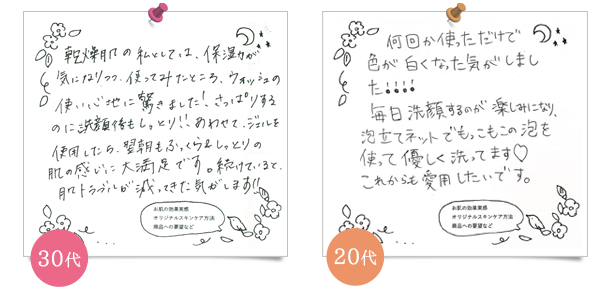 乾燥肌の私としては、保湿力が
気になりつつ、使ってみたところ、ウォッシュの
使い心地に驚きました!さっぱりする
のに洗顔後もしっとり!!あわせて、ジェルを
使用したら、翌朝もふっくら&しっとりの
肌の感じに大満足です。続けていると、
肌トラブルが減ってきた気がします!!
お肌の効果実感
オリジナルスキンケア方法
商品への要望など
30代
何回か使っただけで
色が白くなった気がしまし
た!!!!
毎日洗顔するのが楽しみになり、
泡立てネットでもっこもこの泡を
使って優しく洗ってます♡
これからも愛用したいです。
お肌の効果実感
オリジナルスキンケア方法
商品への要望など
20代